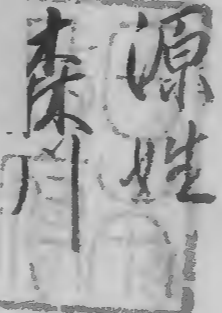 源姓
森川